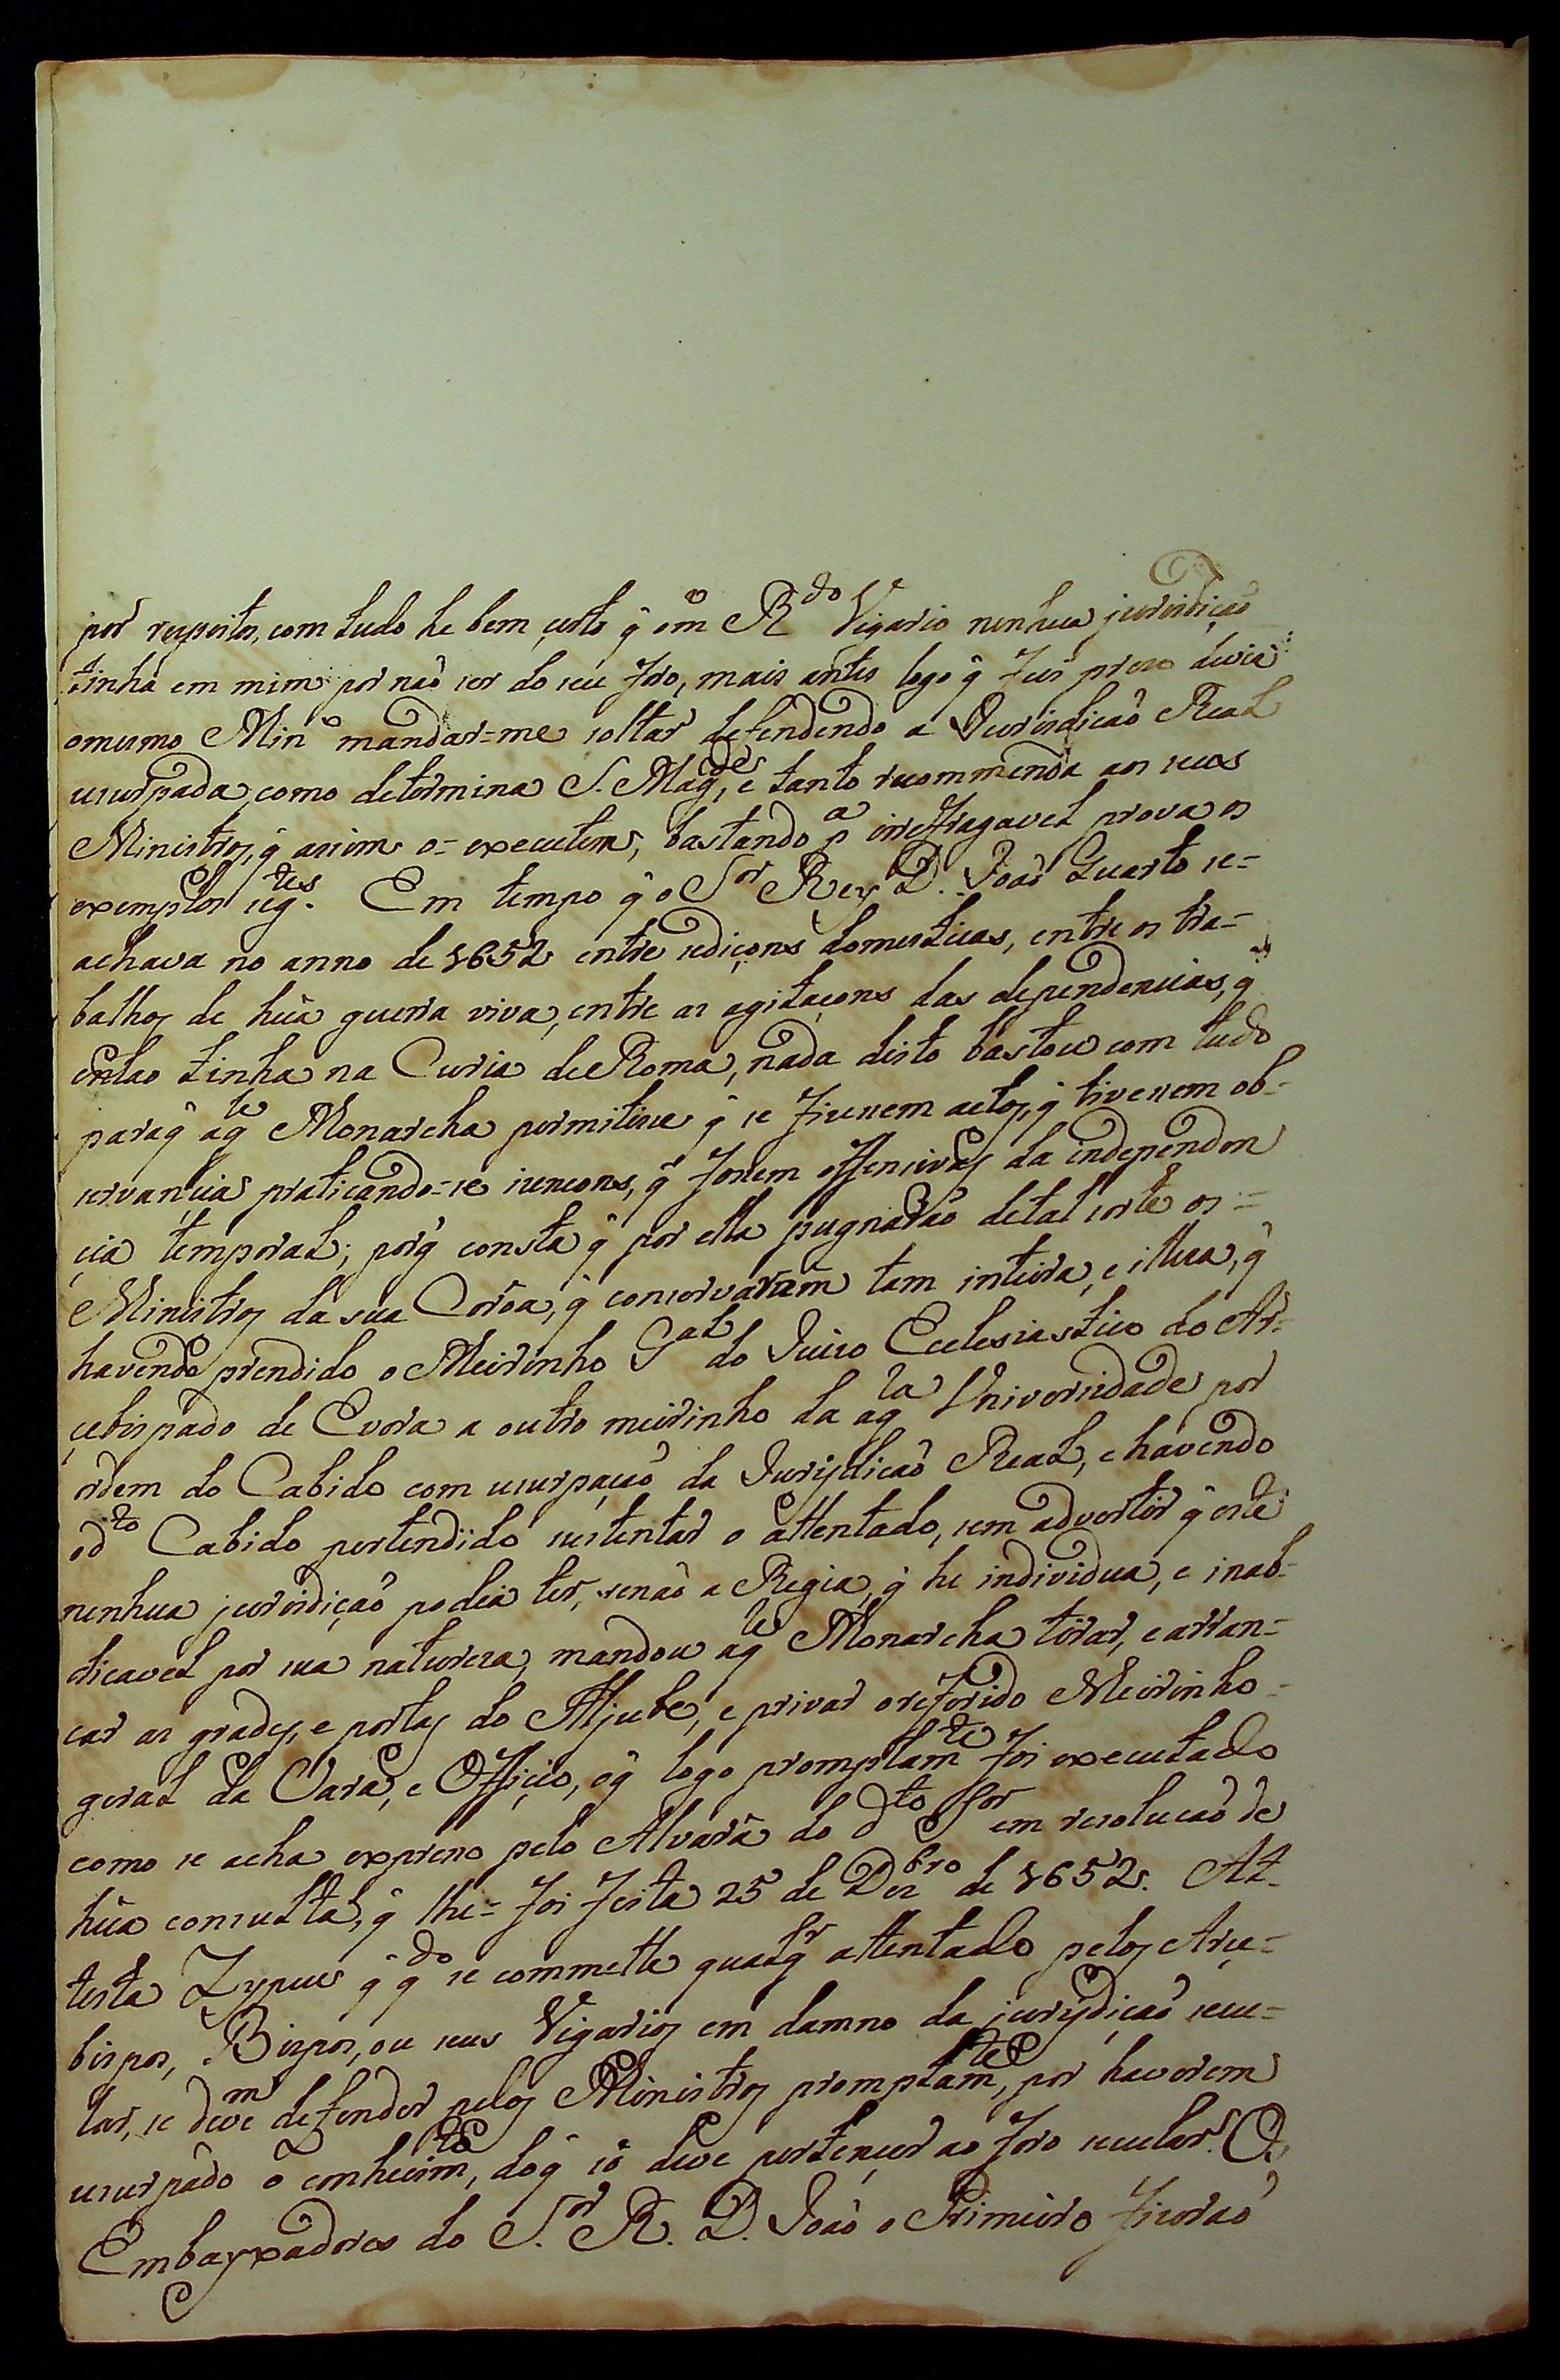 por respeitos, com tudo he bem certo q̃ o m.º R.do Vigario nenhũa jurisdiçaõ
tinha em mim por naõ ser do seu foro, mais antes logo q̃ fuy prezo devia
o mesmo Min.º mandar=me soltar defendendo a Jurisdicaõ Real
uzurpada, como determina S. Mag.des, e tanto recommenda aos seus
Ministros, q̃ asim o= executem, bastando p.a irrefragavel prova os
exemplos seg.tes. Em tempo q̃ o S.or Rey D. Joaõ Quarto se=
achava no anno de 1652 entre sediçons domesticas, entre os tra=
balhos de hũa guerra viva, entre as agitaçons das dependencias, q̃
entao tinha na Curia de Roma, nada disto bastou com tudo
paraq̃ aq.le Monarcha permitise q̃ se fizesem actos, q̃ tivesem ob=
servancia praticando=se sencons, q̃ fosem offensivas da independen
cia temporal; porq̃ consta q̃ por ella pugnaraõ de tal sorte os=
Ministros da sua Coroa, q̃ conservaram tam inteira, e illesa, q̃
havendo prendido o Meirinho G.al do Juizo Ecclesiastico do Ar=
cebispado de Evora a outro meirinho da aq.la Vniversidade por
ordem do Cabido com uzurpaçaõ da Jurisdicaõ Real, e havendo
o d.to Cabido pertendido sustentar o attentado, sem advertir q̃ este
nenhua jurisdiçaõ podia ter, senaõ a Regia, q̃ he individua, e inab=
dicavel por sua natureza, mandou aq.le Monarcha tirar, e arran=
car as grades, e portas do Aljube, e privar o referido Meirinho=
geral da Vara, e Officio, oq̃ logo promptam.te foi executado
como se acha expreso pelo Alvarà do d.to S.or em resolucaõ de
hũa consulta, q̃ lhe= foi feita 25 de Dez.bro de 1652. At=
testa Zypeus q̃ q.do se commette qualq.r attentado pelos Arce=
bispos, Bispos, ou seus Vigarios em damno da jurisdiçaõ secu=
lar, se devem defender pelos Ministros promptam.te, por haverem
uzurpado o conhecim.to, doq̃ sò deve pertencer ao foro secular. Os
Embayxadores do S.or R. D. Joaõ o Primeiro fizeraõ